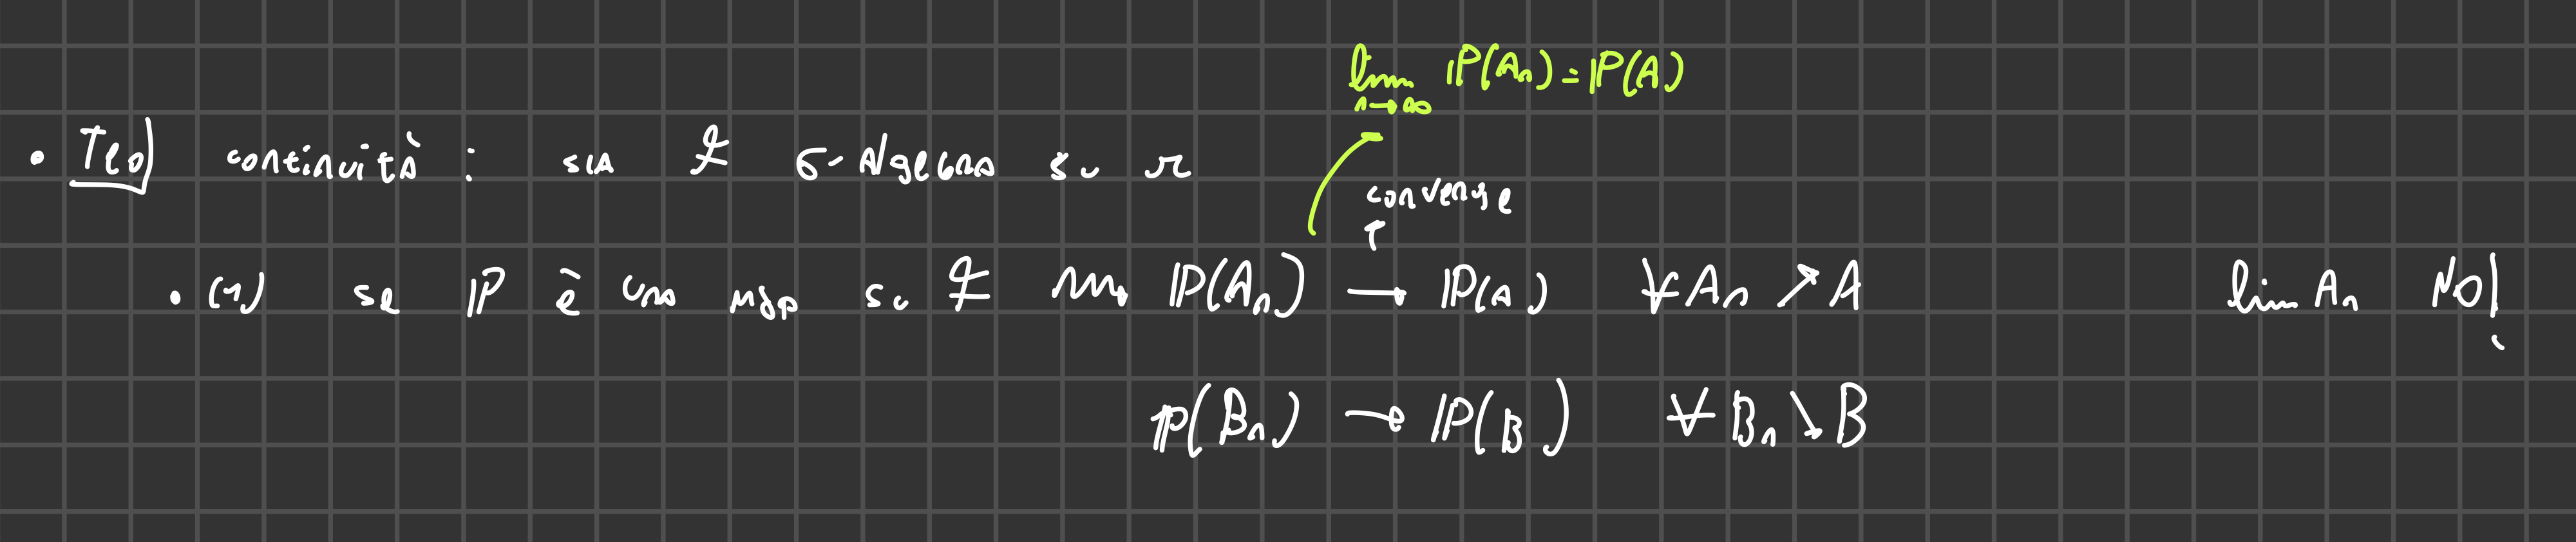 lim P(An) = P(A)
n→∞
• Teo continuità : sia F σ-Algebra su Ω
converge
• (1) se P è una mdp su F P(An) → P(A) ∀ An ↗ A lim An NO!
P(Bn) → P(B) ∀ Bn ↘ B